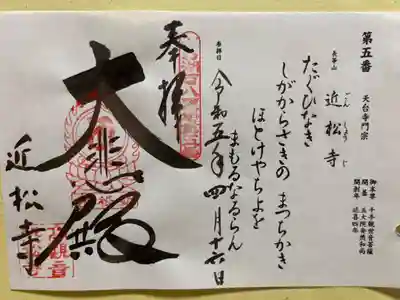 第五番
天台寺門宗
長等山
近松寺
ごんしょうじ
御本尊 千手観世音菩薩
開基 五大院安然和尚
開創年 延喜四年
たぐひなき
しがからさきの まつちかき
ほとけやちよを
まもるなるらん
参拝日
令和五年四月十六日
奉拝
大悲殿
近松寺